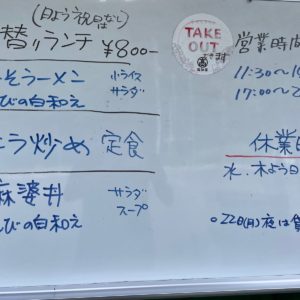 (日よう祝日はなし)
替リランチ ¥800-
そラーメン 小ライス
サラダ
びの白和え
ラ炒め 定食
麻婆丼 サラダ
スープ
びの白和え
TAKE
OUT
できます
営業時間
11:30~
17:00~2
休業
水、木よう日
○22日(月)夜は